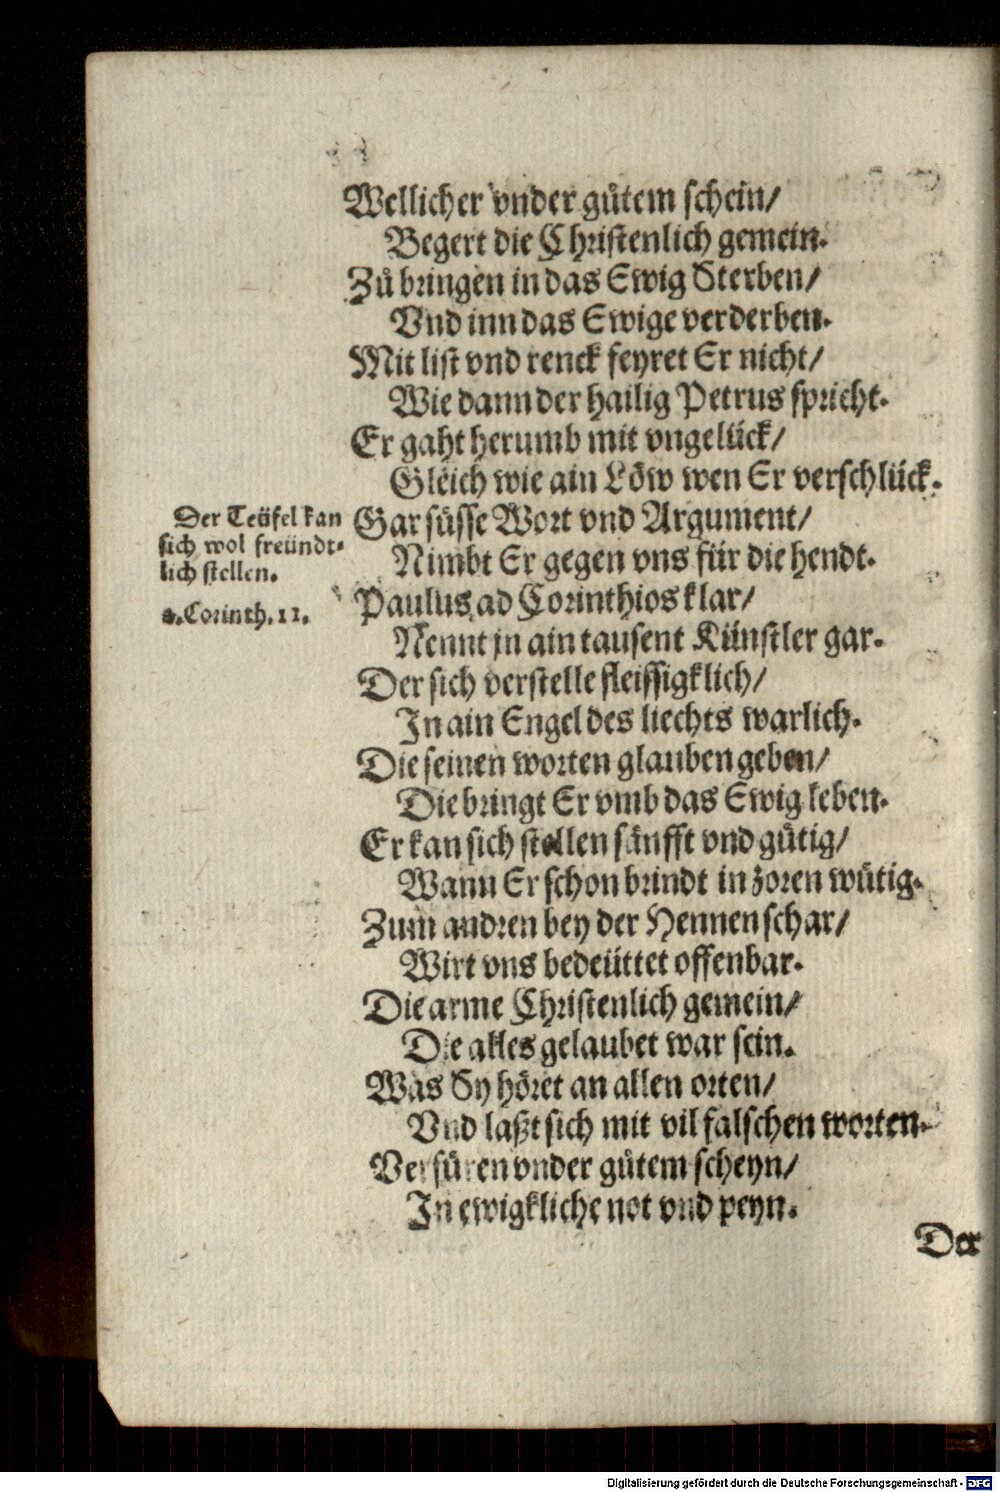 Wellicher vnder gůtem schein/
Begert die Christenlich gemein.
Zů bringen in das Ewig Sterben/
Vnd inn das Ewige verderben.
Mit list vnd renck feyret Er nicht/
Wie dann der hailig Petrus spricht.
Er gaht herumb mit vngelück/
Gleich wie ain Löw wen Er verschlück.
Der Teüfel kan
sich wol freündt-
lich stellen.
2. Corinth. 11.
Gar süsse Wort vnd Argument/
Nimbt Er gegen vns für die hendt.
Paulus ad Corinthios klar/
Nennt jn ain tausent Künstler gar.
Der sich verstelle fleissigklich/
In ain Engel des liechts warlich.
Die seinen worten glauben geben/
Die bringt Er vmb das Ewig leben.
Er kan sich stellen sänfft vnd gütig/
Wann Er schon brindt in zoren wütig.
Zum andren bey der Hennen schar/
Wirt vns bedeüttet offenbar.
Die arme Christenlich gemein/
Die alles gelaubet war sein.
Was Sy höret an allen orten/
Vnd laßt sich mit vil falschen worten.
Verfüren vnder gůtem scheyn/
In ewigkliche not vnd peyn.
Der
Digitalisierung gefördert durch die Deutsche Forschungsgemeinschaft - DFG